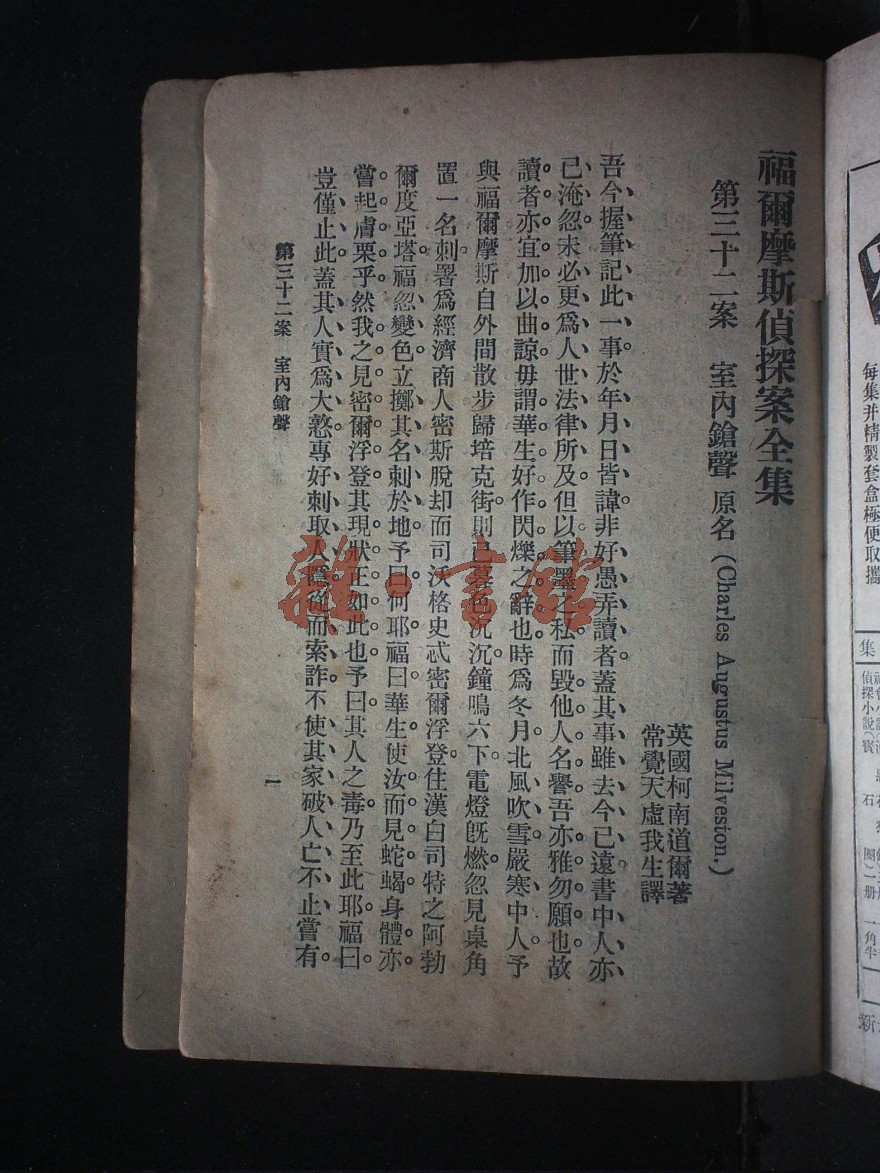 福爾摩斯偵探案全集
第三十二案 室內鎗聲 原名(Charles Augustus Milveston.)
英國柯南道爾著
常覺天虛我生譯
吾今握筆記此一事於年月日皆諱非好愚弄讀者蓋其事雖去今已遠書中人亦
已淹忽未必更爲人世法律所及但以筆墨之私而毀他人名譽吾亦雅勿願也故
讀者亦宜加以曲諒毋謂華生好作閃爍之辭也時爲冬月北風吹雪嚴寒中人予
與福爾摩斯自外間散步歸培克街則已暮色沉沉鐘鳴六下電燈旣燃忽見桌角
置一名刺署爲經濟商人密斯脫却而司沃格史忒密爾浮登住漢白司特之阿勃
爾度亞塔福忽變色立擲其名刺於地予曰何耶福曰華生使汝而見蛇蝎身體亦
嘗起膚栗乎然我之見密爾浮登其現狀正如此也予曰其人之毒乃至此耶福曰
豈僅止此蓋其人實爲大憝專好刺取人隱從而索詐不使其家破人亡不止嘗有
第三十二案 室內鎗聲
一
雜·書館
每集并精製套盒極便取攜
集
偵探小說
石
册 一角半
新